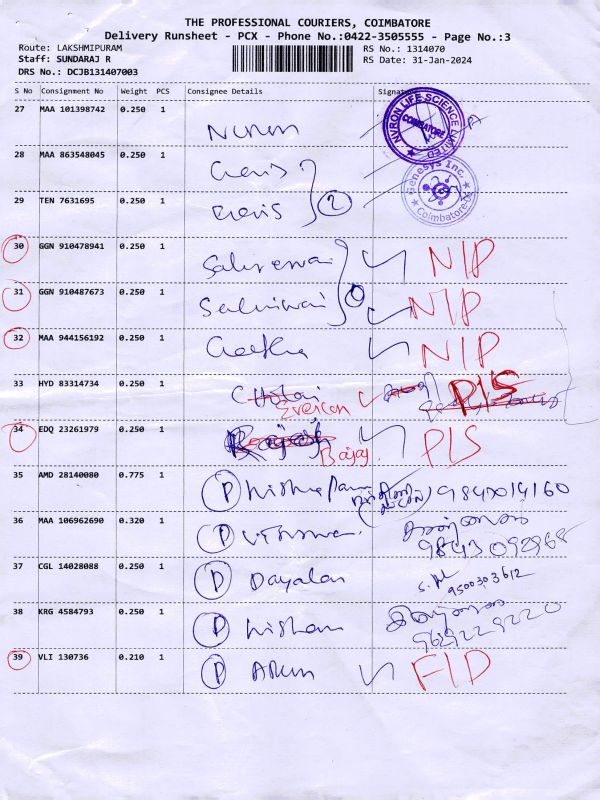 THE PROFESSIONAL COURIERS, COIMBATORE
Delivery Runsheet - PCX - Phone No.:0422-3505555 - Page No.:3
Route: LAKSHMIPURAM
RS No.: 1314070
Staff: SUNDARAJ R
RS Date: 31-Jan-2024
DRS No.: DCJB131407003
S No Consignment No Weight PCS Consignee Details Signature
27 MAA 101398742 0.250 1
NVRON LIFE SCIENCE LIMITED
COIMBATORE
28 MAA 863548045 0.250 1
Genesys Inc.
Coimbatore
29 TEN 7631695 0.250 1
2
30 GGN 910478941 0.250 1 N/P
31 GGN 910487673 0.250 1 N/P
32 MAA 944156192 0.250 1 Geetha N/P
33 HYD 83314734 0.250 1 P/S
34 EDQ 23261979 0.250 1 Bajaj P/S
35 AMD 28140080 0.775 1 P
36 MAA 106962690 0.320 1 P
9843092968
37 CGL 14028088 0.250 1 D Dayalan
9500303612
38 KRG 4584793 0.250 1 P
9629229220
39 VLI 130736 0.210 1 P Arun F/D